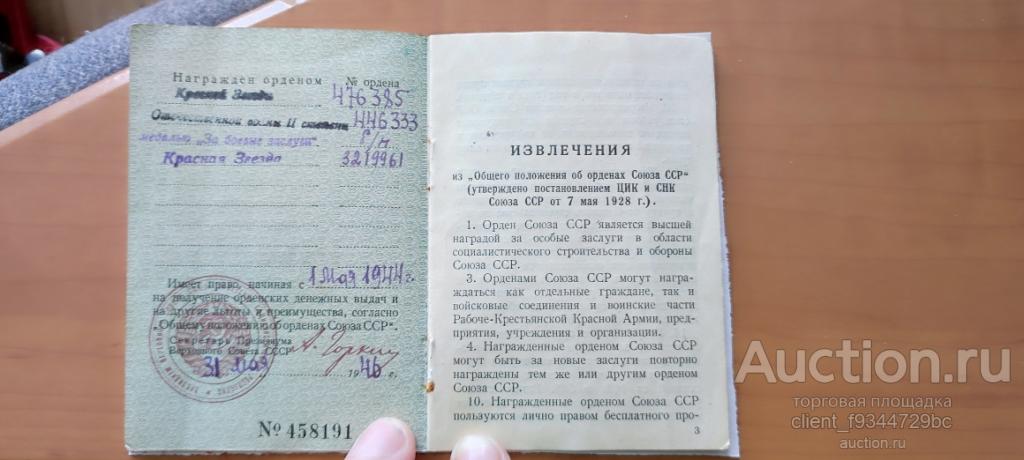 Награжден орденом № ордена
Красной Звезды 476385
Отечественной войны II степени 446333
медалью „За боевые заслуги". б/н
Красная Звезда 3219961
Имеет право, начиная с 1 Мая 1944 г.
на получение орденских денежных выдач и
на другие льготы и преимущества, согласно
„Общему положению об орденах Союза ССР".
Секретарь Президиума
Верховного Совета СССР А. Горкин
31 Мая 1946 г.
№ 458191
ИЗВЛЕЧЕНИЯ
из „Общего положения об орденах Союза ССР"
(утверждено постановлением ЦИК и СНК
Союза ССР от 7 мая 1928 г.).
1. Орден Союза ССР является высшей
наградой за особые заслуги в области
социалистического строительства и обороны
Союза ССР.
3. Орденами Союза ССР могут награ-
ждаться как отдельные граждане, так и
войсковые соединения и воинские части
Рабоче-Крестьянской Красной Армии, пред-
приятия, учреждения и организации.
4. Награжденные орденом Союза ССР
могут быть за новые заслуги повторно
награждены тем же или другим орденом
Союза ССР.
10. Награжденные орденом Союза ССР
пользуются лично правом бесплатного про-
3
Auction.ru
торговая площадка
client_f9344729bc
auction.ru